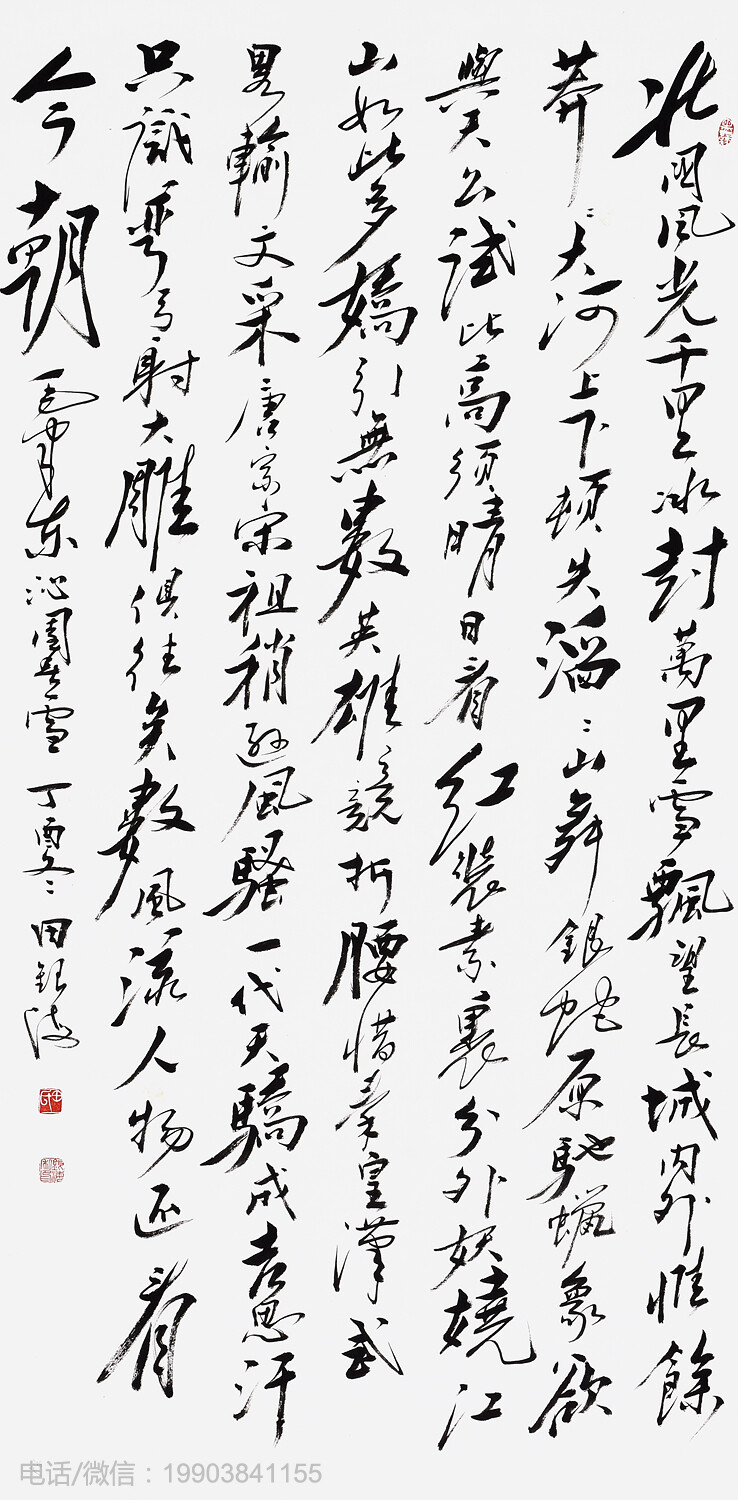 北國風光千里冰封萬里雪飄望長城內外惟餘
莽〻大河上下頓失滔〻山舞銀蛇原馳蠟象欲
與天公試比高須晴日看紅裝素裹分外妖嬈江
山如此多嬌引無數英雄競折腰惜秦皇漢武
畧輸文采唐宗宋祖稍遜風騷一代天驕成吉思汗
只識彎弓射大雕俱往矣數風流人物還看
今朝
毛澤東沁園春雪 丁酉冬 田銀
电话/微信：19903841155